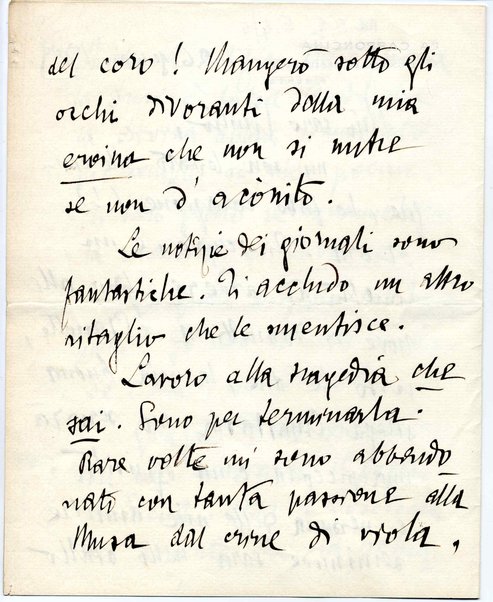 del coro! Mangerò sotto gli
occhi divoranti della mia
eroina che non si nutre
se non d'acònito.
Le notizie dei giornali sono
fantastiche. Ti accludo un altro
ritaglio che le smentisce.
Lavoro alla tragedia che
sai. Sono per terminarla.
Rare volte mi sono abbando
nato con tanta passione alla
Musa dal crine di viola.